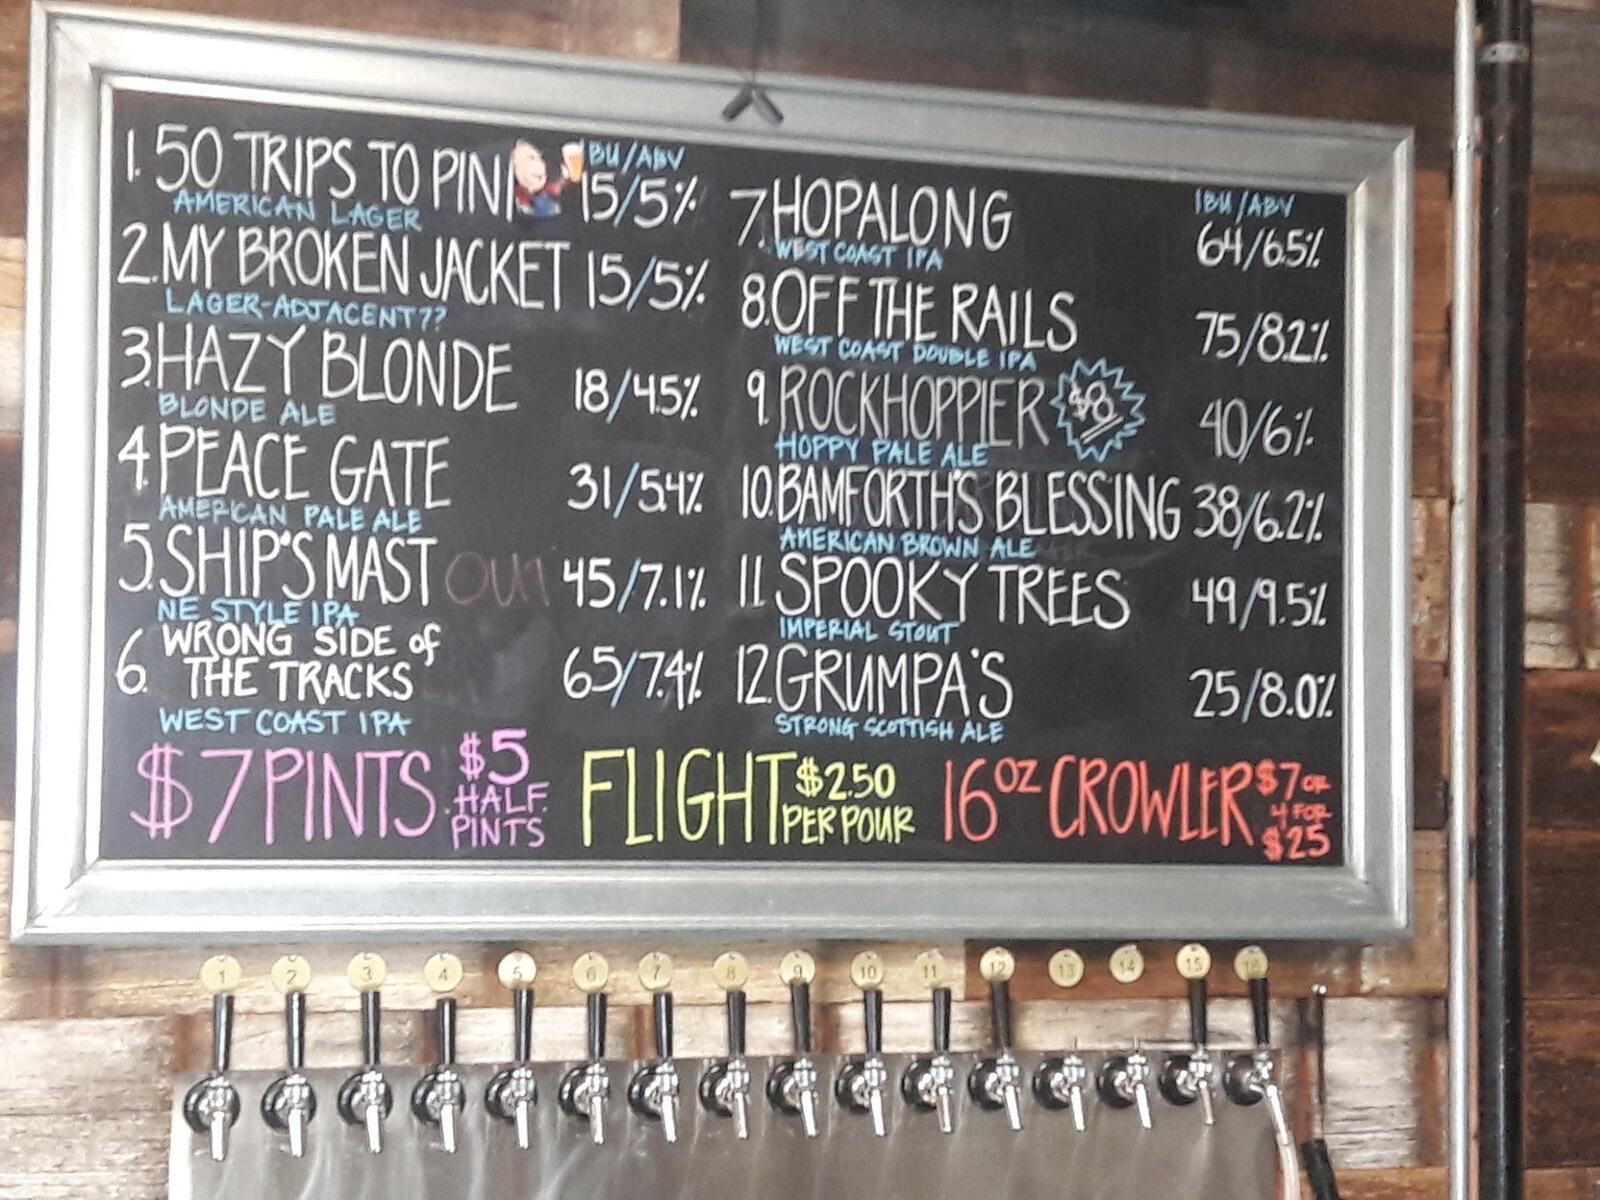 1. 50 TRIPS TO PINT
IBU/ABV
15/5%
AMERICAN LAGER
2. MY BROKEN JACKET 15/5%
LAGER-ADJACENT??
3. HAZY BLONDE 18/4.5%
BLONDE ALE
4. PEACE GATE 31/5.4%
AMERICAN PALE ALE
5. SHIP'S MAST OUT 45/7.1%
NE STYLE IPA
6. WRONG SIDE of
THE TRACKS 65/7.4%
WEST COAST IPA
IBU/ABV
7. HOPALONG 64/6.5%
WEST COAST IPA
8. OFF THE RAILS 75/8.2%
WEST COAST DOUBLE IPA
9. ROCKHOPPIER $8 40/6%
HOPPY PALE ALE
10. BAMFORTH'S BLESSING 38/6.2%
AMERICAN BROWN ALE
11. SPOOKY TREES 49/9.5%
IMPERIAL STOUT
12. GRUMPA'S 25/8.0%
STRONG SCOTTISH ALE
$7 PINTS
$5
HALF
PINTS
FLIGHT
$2.50
PER POUR
16oz CROWLER
$7 or
4 FOR
$25
1 2 3 4 5 6 7 8 9 10 11 12 13 14 15 16